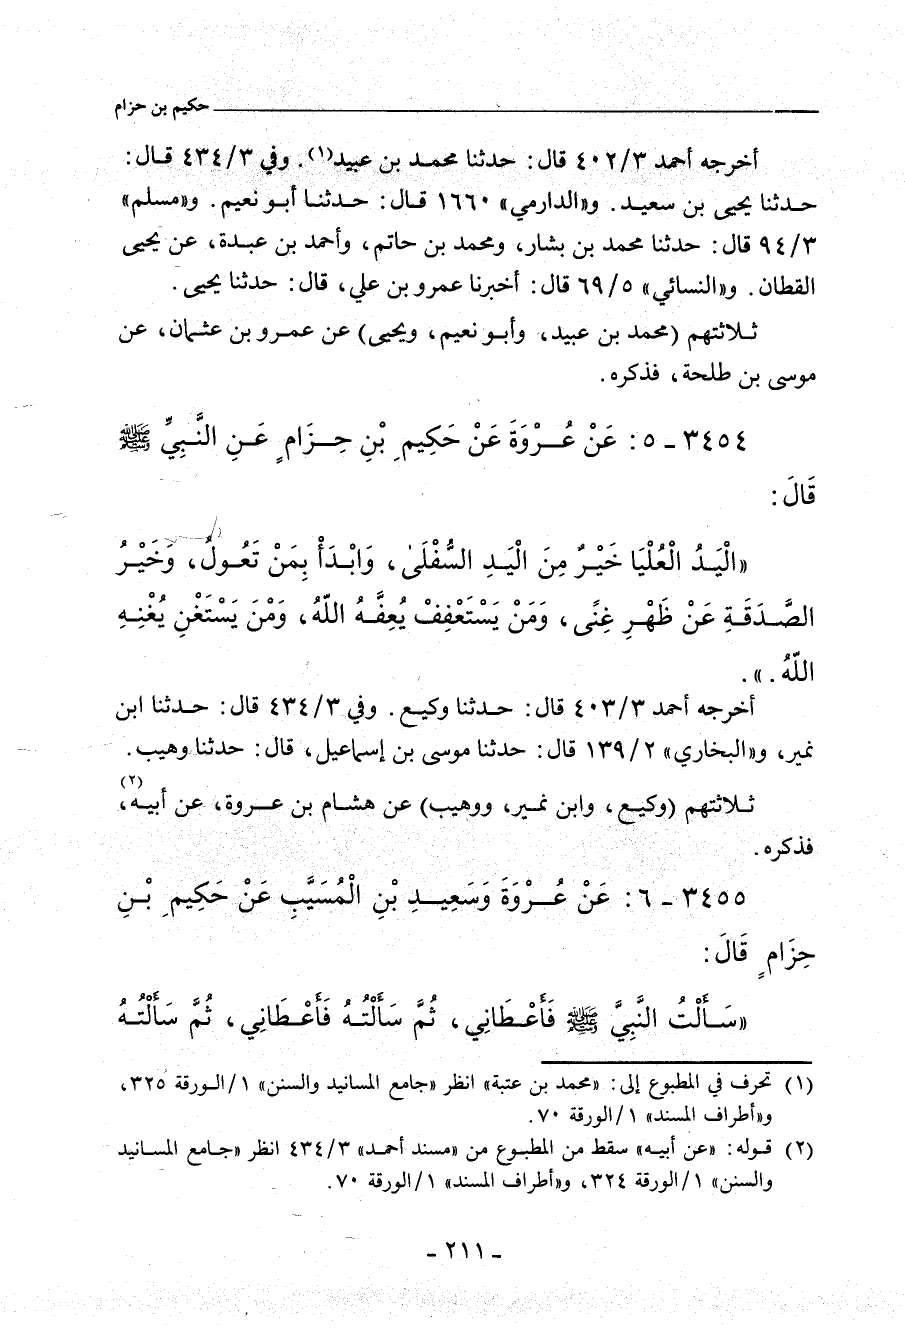 حكيم بن حزام
أخرجه أحمد ٤٠٢/٣ قال: حدثنا محمد بن عبيد(١). وفي ٤٣٤/٣ قال:
حدثنا يحيى بن سعيد. و«الدارمي» ١٦٦٠ قال: حدثنا أبو نعيم. و«مسلم»
٩٤/٣ قال: حدثنا محمد بن بشار، ومحمد بن حاتم، وأحمد بن عبدة، عن يحيى
القطان. و«النسائي» ٦٩/٥ قال: أخبرنا عمرو بن علي، قال: حدثنا يحيى.
ثلاثتهم (محمد بن عبيد، وأبو نعيم، ويحيى) عن عمرو بن عثمان، عن
موسى بن طلحة، فذكره.
٣٤٥٤ - ٥: عَنْ عُرْوَةَ عَنْ حَكِيمِ بْنِ حِزَامٍ عَنِ النَّبِيِّ ﷺ
قَالَ:
«الْيَدُ الْعُلْيَا خَيْرٌ مِنَ الْيَدِ السُّفْلَىٰ، وَابْدَأْ بِمَنْ تَعُولُ، وَخَيْرُ
الصَّدَقَةِ عَنْ ظَهْرِ غِنًى، وَمَنْ يَسْتَعْفِفْ يُعِفَّهُ اللّهُ، وَمَنْ يَسْتَغْنِ يُغْنِهِ
اللّهُ.».
أخرجه أحمد ٤٠٣/٣ قال: حدثنا وكيع. وفي ٤٣٤/٣ قال: حدثنا ابن
نمير، و«البخاري» ١٣٩/٢ قال: حدثنا موسى بن إسماعيل، قال: حدثنا وهيب.
ثلاثتهم (وكيع، وابن نمير، ووهيب) عن هشام بن عروة، عن أبيه(٢)،
فذكره.
٣٤٥٥ - ٦: عَنْ عُرْوَةَ وَسَعِيدِ بْنِ الْمُسَيَّبِ عَنْ حَكِيمِ بْنِ
حِزَامٍ قَالَ:
«سَأَلْتُ النَّبِيَّ ﷺ فَأَعْطَانِي، ثُمَّ سَأَلْتُهُ فَأَعْطَانِي، ثُمَّ سَأَلْتُهُ
(١) تحرف في المطبوع إلى: «محمد بن عتبة» انظر «جامع المسانيد والسنن» ١/الورقة ٣٢٥،
و«أطراف المسند» ١/الورقة ٧٠.
(٢) قوله: «عن أبيه» سقط من المطبوع من «مسند أحمد» ٤٣٤/٣ انظر «جامع المسانيد
والسنن» ١/الورقة ٣٢٤، و«أطراف المسند» ١/الورقة ٧٠.
- ٢١١ -